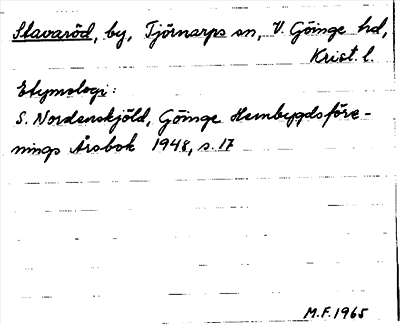 Stavaröd, by, Tjörnarps sn, V. Göinge hd,
Krist. l.
Etymologi:
S. Nordenskjöld, Göinge Hembygdsföre-
nings Årsbok 1948, s. 17
M.F. 1965